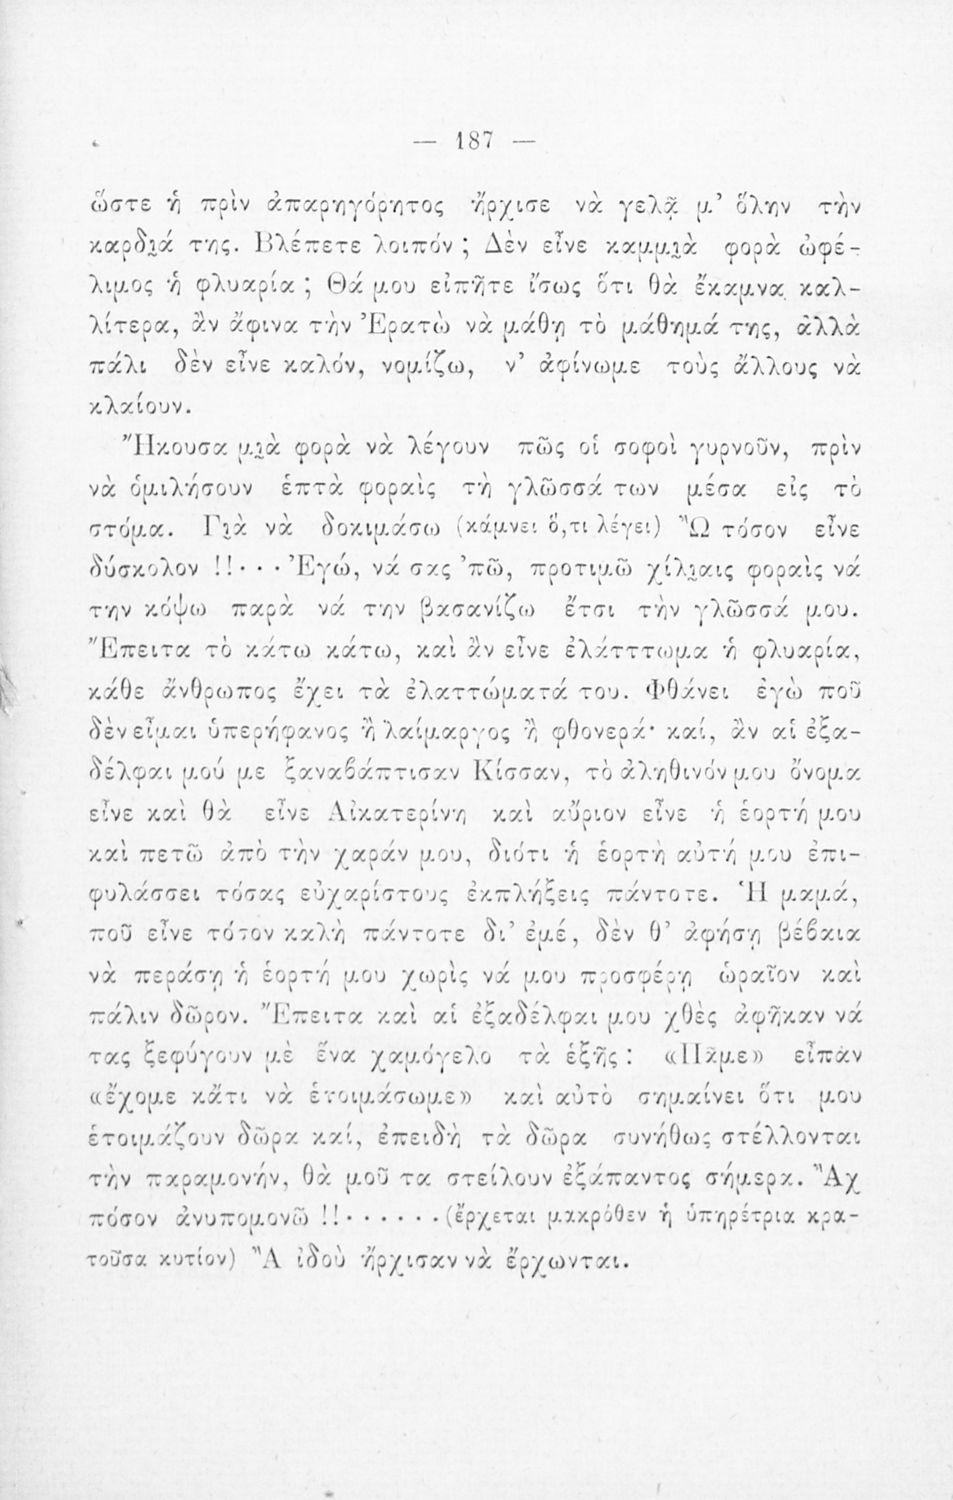 — 187 —
ὥστε ἡ πρὶν ἀπαρηγόρητος ἤρχισε νὰ γελᾷ μ’ ὅλην τὴν
καρδι̯ά της. Βλέπετε λοιπόν ; Δὲν εἶνε καμμι̯ὰ φορὰ ὠφέ-
λιμος ἡ φλυαρία ; Θά μου εἰπῆτε ἴσως ὅτι θὰ ἔκαμνα καλ-
λίτερα, ἂν ἄφινα τὴν Ἐρατὼ νὰ μάθῃ τὸ μάθημά της, ἀλλὰ
πάλι δὲν εἶνε καλόν, νομίζω, ν’ ἀφίνωμε τοὺς ἄλλους νὰ
κλαίουν.
Ἤκουσα μι̯ὰ φορὰ νὰ λέγουν πῶς οἱ σοφοὶ γυρνοῦν, πρὶν
νὰ ὁμιλήσουν ἑπτὰ φοραὶς τὴ γλῶσσά των μέσα εἰς τὸ
στόμα. Γι̯ὰ νὰ δοκιμάσω (κάμνει ὅ,τι λέγει) Ὢ τόσον εἶνε
δύσκολον !!··· Ἐγώ, νά σας ’πῶ, προτιμῶ χίλι̯αις φοραὶς νά
την κόψω παρὰ νά την βασανίζω ἔτσι τὴν γλῶσσά μου.
Ἔπειτα τὸ κάτω κάτω, καὶ ἂν εἶνε ἐλάτττωμα ἡ φλυαρία,
κάθε ἄνθρωπος ἔχει τὰ ἐλαττώματά του. Φθάνει ἐγὼ ποῦ
δὲν εἶμαι ὑπερήφανος ἢ λαίμαργος ἢ φθονερά· καί, ἂν αἱ ἐξα-
δέλφαι μού με ξαναβάπτισαν Κίσσαν, τὸ ἀληθινόν μου ὄνομα
εἶνε καὶ θὰ εἶνε Αἰκατερίνη καὶ αὔριον εἶνε ἡ ἑορτή μου
καὶ πετῶ ἀπὸ τὴν χαράν μου, διότι ἡ ἑορτὴ αὐτή μου ἐπι-
φυλάσσει τόσας εὐχαρίστους ἐκπλήξεις πάντοτε. Ἡ μαμά,
ποῦ εἶνε τόσον καλὴ πάντοτε δι’ ἐμέ, δὲν θ’ ἀφήσῃ βέβαια
νὰ περάσῃ ἡ ἑορτή μου χωρὶς νά μου προσφέρῃ ὡραῖον καὶ
πάλιν δῶρον. Ἔπειτα καὶ αἱ ἐξαδέλφαι μου χθὲς ἀφῆκαν νά
τας ξεφύγουν μὲ ἕνα χαμόγελο τὰ ἑξῆς : «Πᾶμε» εἶπαν
«ἔχομε κἄτι νὰ ἑτοιμάσωμε» καὶ αὐτὸ σημαίνει ὅτι μου
ἑτοιμάζουν δῶρα καί, ἐπειδὴ τὰ δῶρα συνήθως στέλλονται
τὴν παραμονήν, θὰ μοῦ τα στείλουν ἐξάπαντος σήμερα. Ἂχ
πόσον ἀνυπομονῶ !!······(ἔρχεται μακρόθεν ἡ ὑπηρέτρια κρα-
τοῦσα κυτίον) Ἂ ἰδοὺ ἤρχισαν νὰ ἔρχωνται.